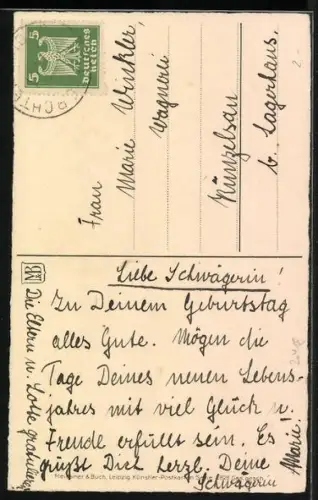 5 5
Deutsches
Reich
Frau
Marie Winkler,
Wagnerei
Künzelsau
b. Lagerhaus.
Liebe Schwägerin!
Zu Deinem Geburtstag
alles Gute. Mögen die
Tage Deines neuen Lebens-
jahres mit viel Glück u.
Freude erfüllt sein. Es
grüßt Dich herzl. Deine
Schwägerin Marie.
Die Eltern u. Lotte gratulieren
& Buch, Leipzig. Künstler-Postkarten